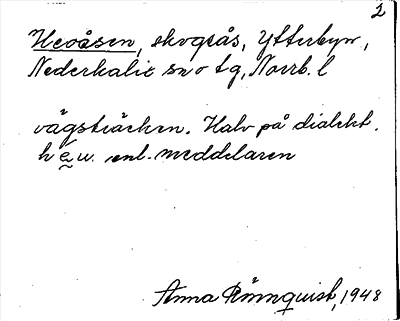 2
Heoåsen, skogsås, Ytterbyn,
Nederkalix sn o tg, Norrb. l
vägsträcken. Halv på dialekt.
h e u. enl. meddelaren
Anna Rönnquist, 1948